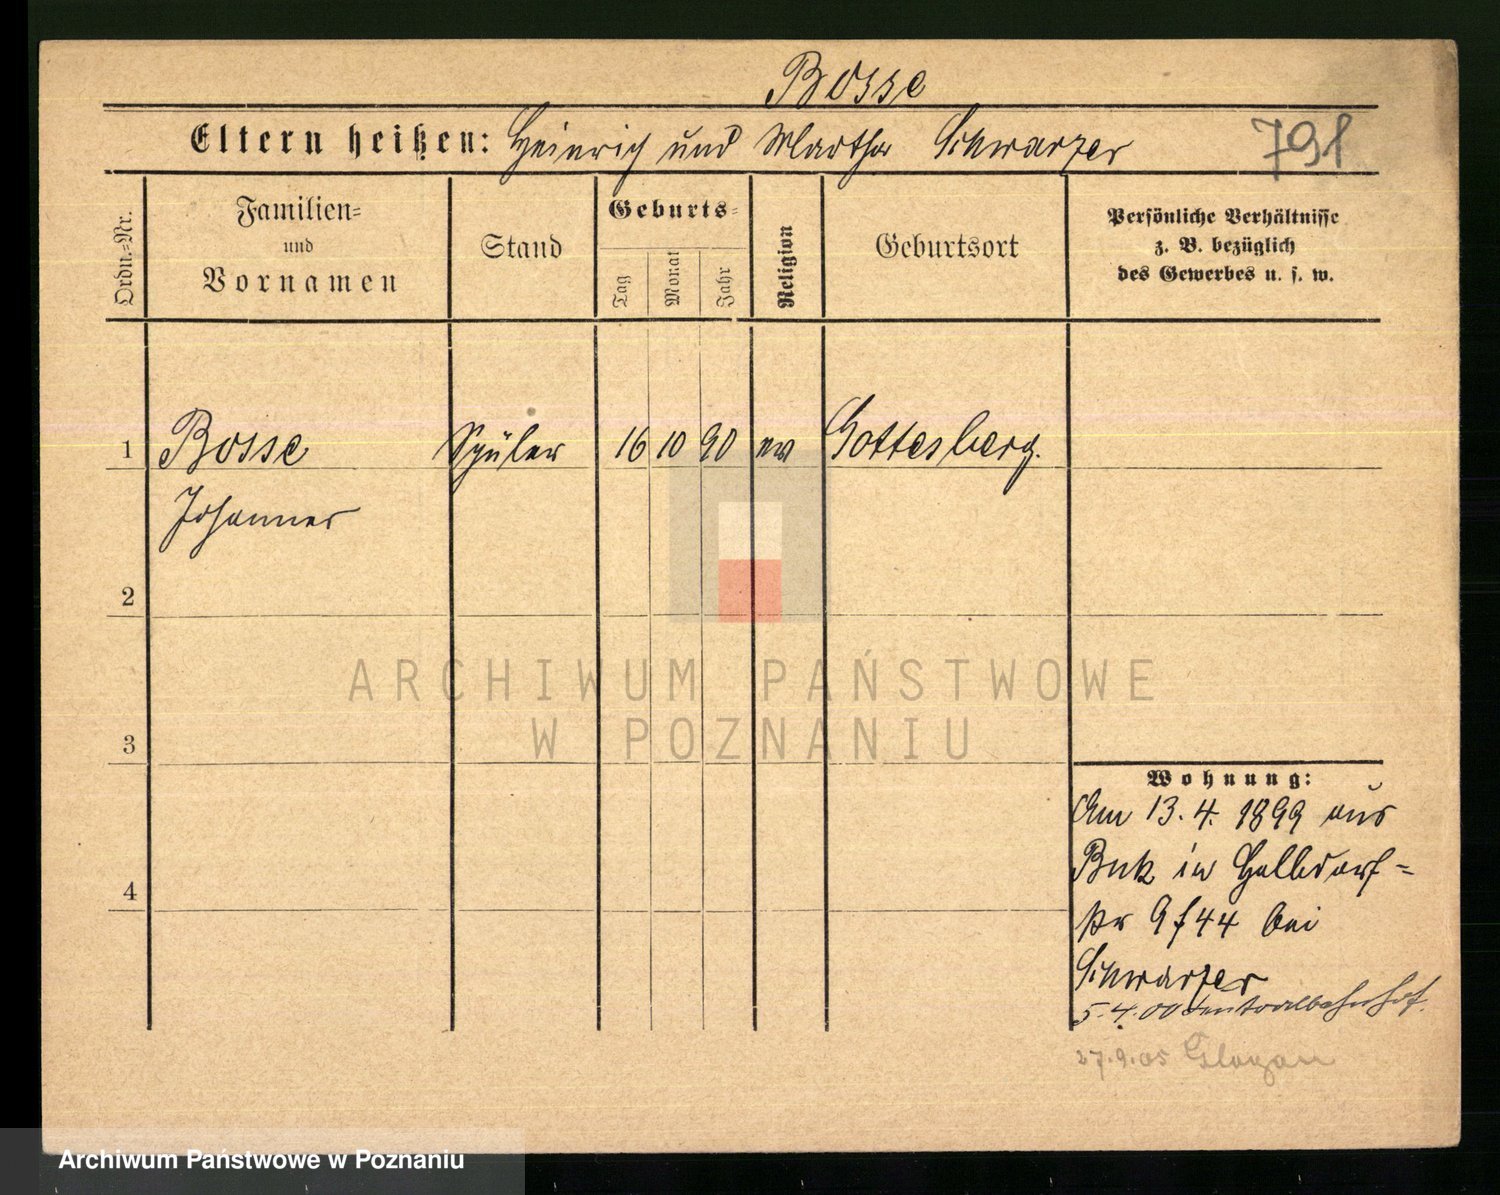 Bosse
Eltern heißen: Heinrich und Martha Schwarzer 791
Ordn.=Nr.
Familien=
und
Vornamen
Stand
Geburts=
Tag
Monat
Jahr
Religion
Geburtsort
Persönliche Verhältnisse
z. B. bezüglich
des Gewerbes u. s. w.
1 Bosse Schüler 16 10 90 ev Gottesberg.
Johannes
2
ARCHIWUM PAŃSTWOWE
W POZNANIU
3
Wohnung:
Am 13. 4. 1899 aus
Buk in Halbdorf=
str 9 f 44 bei
4
Schwarzer
5.4.00 Centralbahnhof.
27.9.05 Glogau
Archiwum Państwowe w Poznaniu